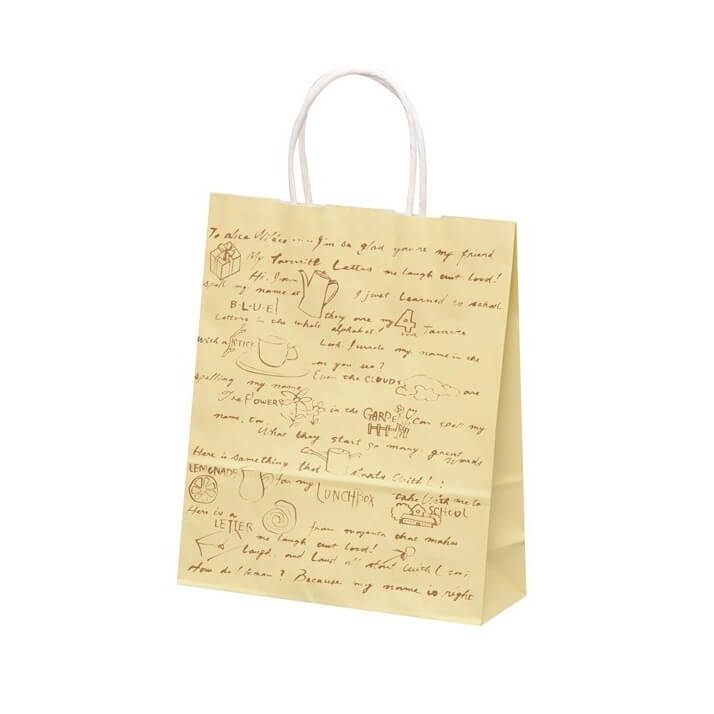 To alice Wildco..... I'm so glad you're my friend
My Favorite Letters me laugh out loud!
Hi, I am
spell my name at I just learned to school
B·L·U·E!
they are my 4 Favorite
Letters in the whole alphabet!
With a STICK Look I wrote my name in the
you see?
Even the CLOUDS are
spelling my name
The FLOWERS in the GARDEN can spell my
name, too.
What they start so many great words
Here is something that starts with L!
LEMONADE for my LUNCHBOX take with me to SCHOOL
Here is a
LETTER from magenta that makes
me laugh out loud!
Laugh and Loud all start with L
How do I know? Because my name is right